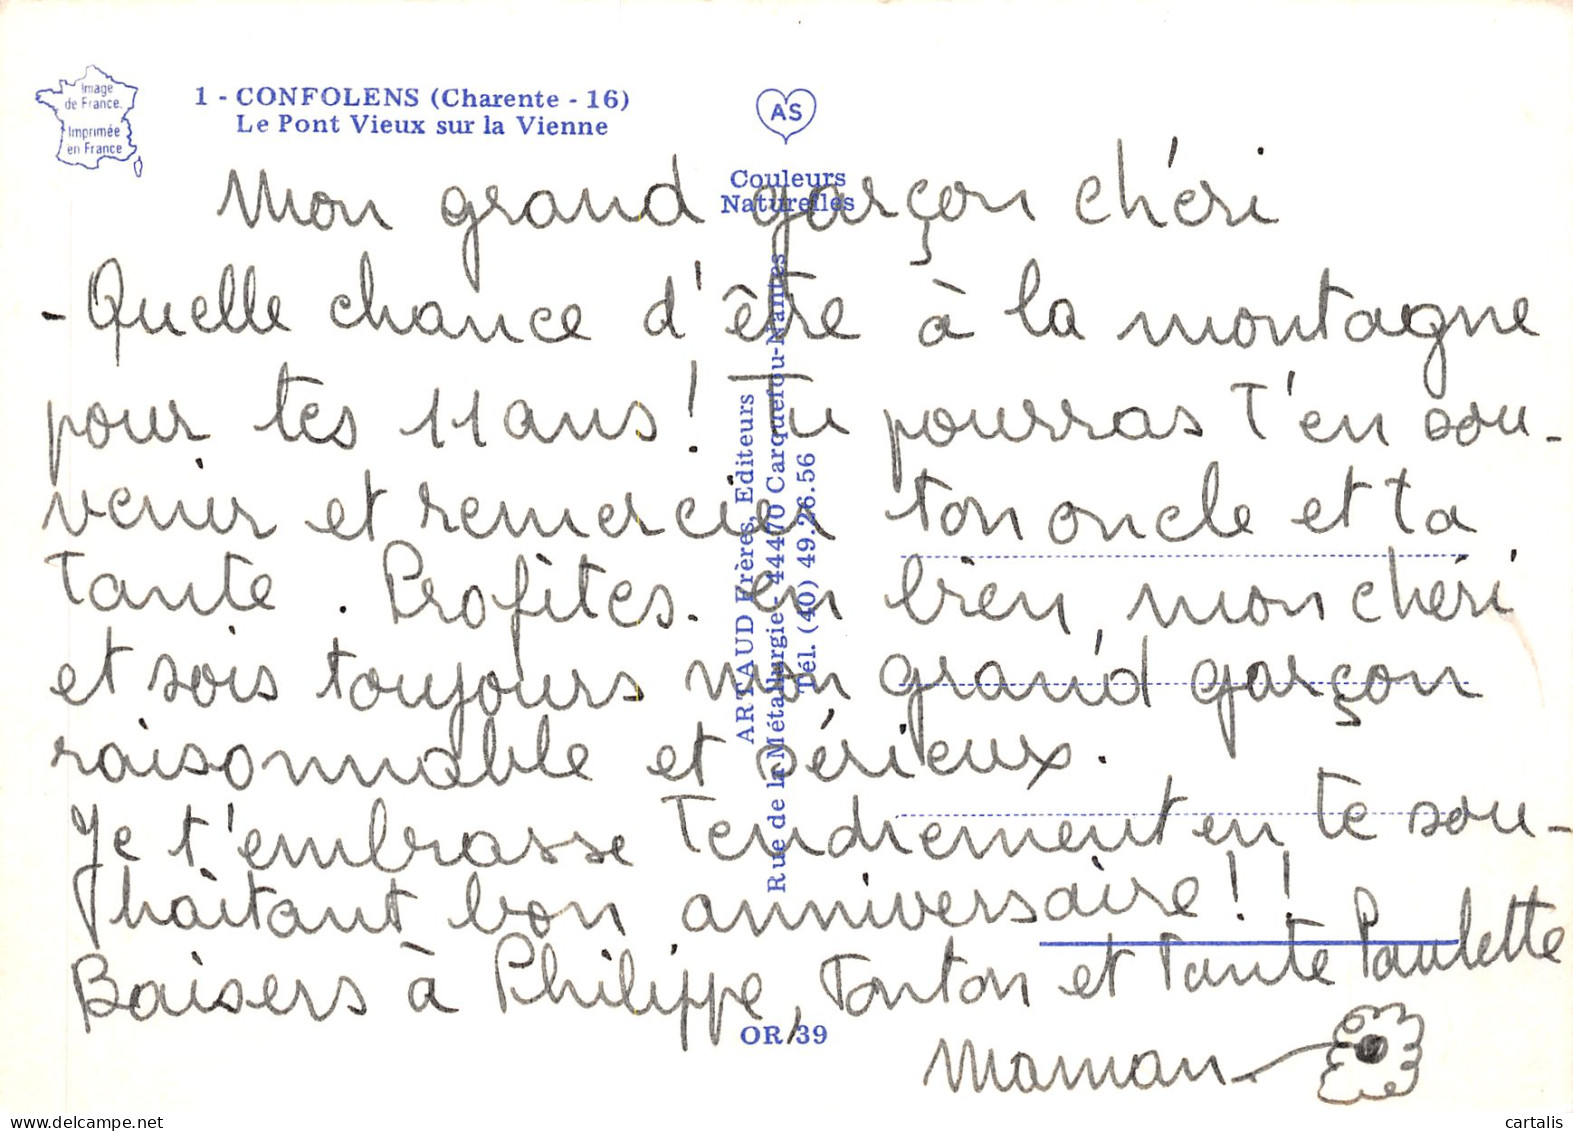 Image
de France.
Imprimée
en France
1 - CONFOLENS (Charente - 16)
Le Pont Vieux sur la Vienne
AS
Couleurs
Naturelles
ARTAUD Frères, Editeurs
Rue de la Métallurgie - 44470 Carquefou-Nantes
Tél. (40) 49.26.56
OR 39
Mon grand garçon chéri
- Quelle chance d'être à la montagne
pour tes 11 ans ! Tu pourras t'en sou-
venir et remercier ton oncle et ta
tante . Profites. en bien, mon chéri
et sois toujours mon grand garçon
raisonnable et sérieux.
Je t'embrasse tendrement en te sou-
haitant bon anniversaire ! !
Baisers à Philippe, Tonton et Tante Paulette
Maman
www.delcampe.net
cartalis